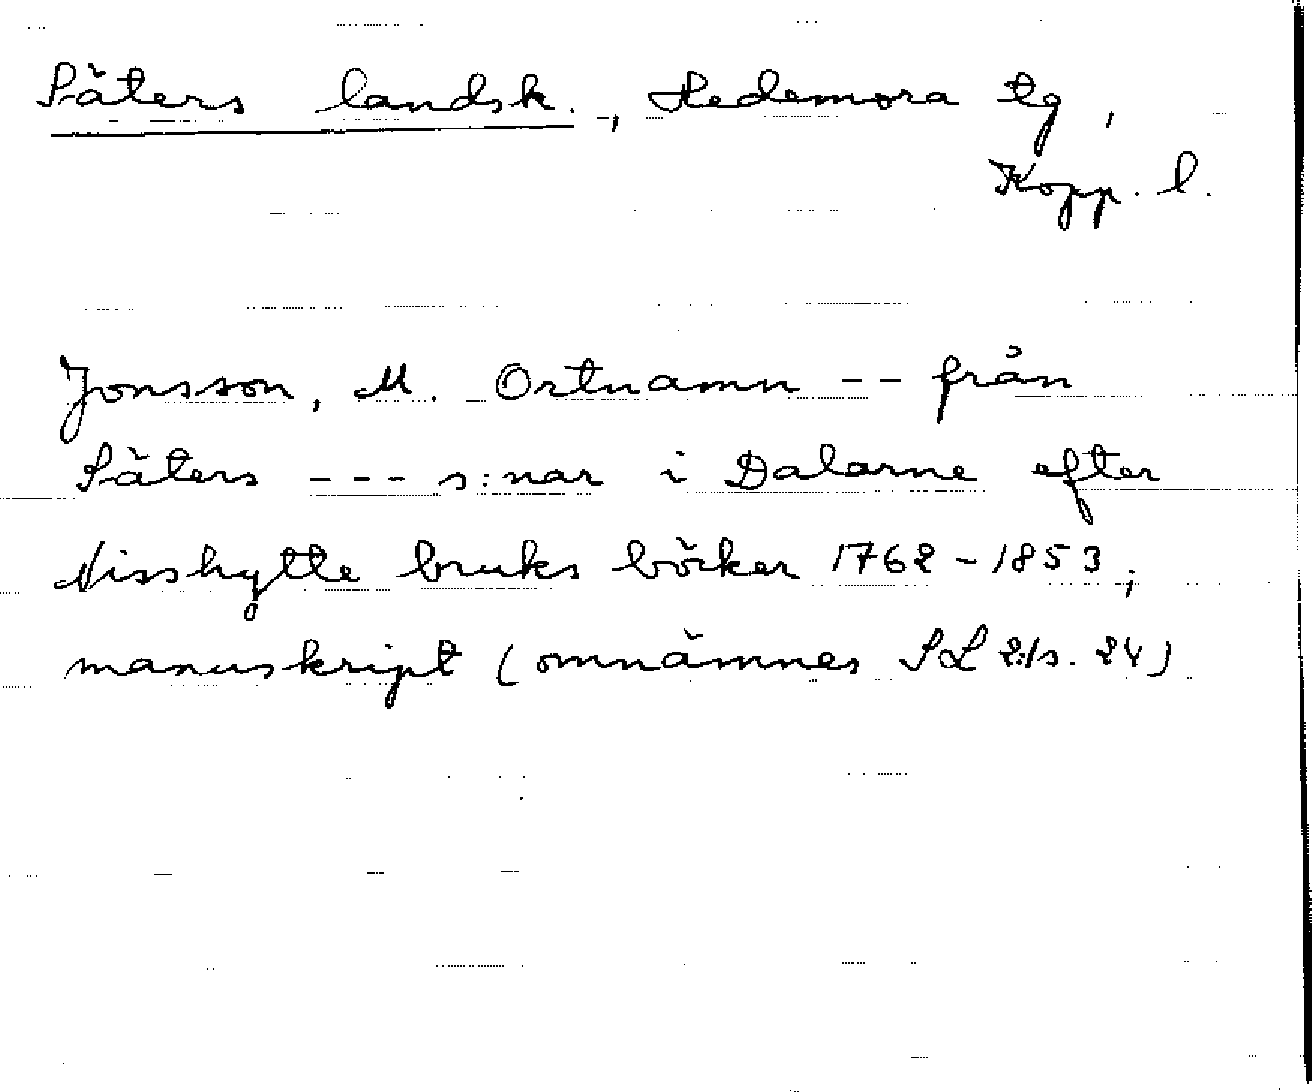 Säters landsk., Hedemora tg,
Kopp. l.
Jonsson, M. Ortnamn -- från
Säters --- s:nar i Dalarne efter
Nisshytte bruks böcker 1762-1853;
manuskript (omnämnes SL 2:1 s. 24)